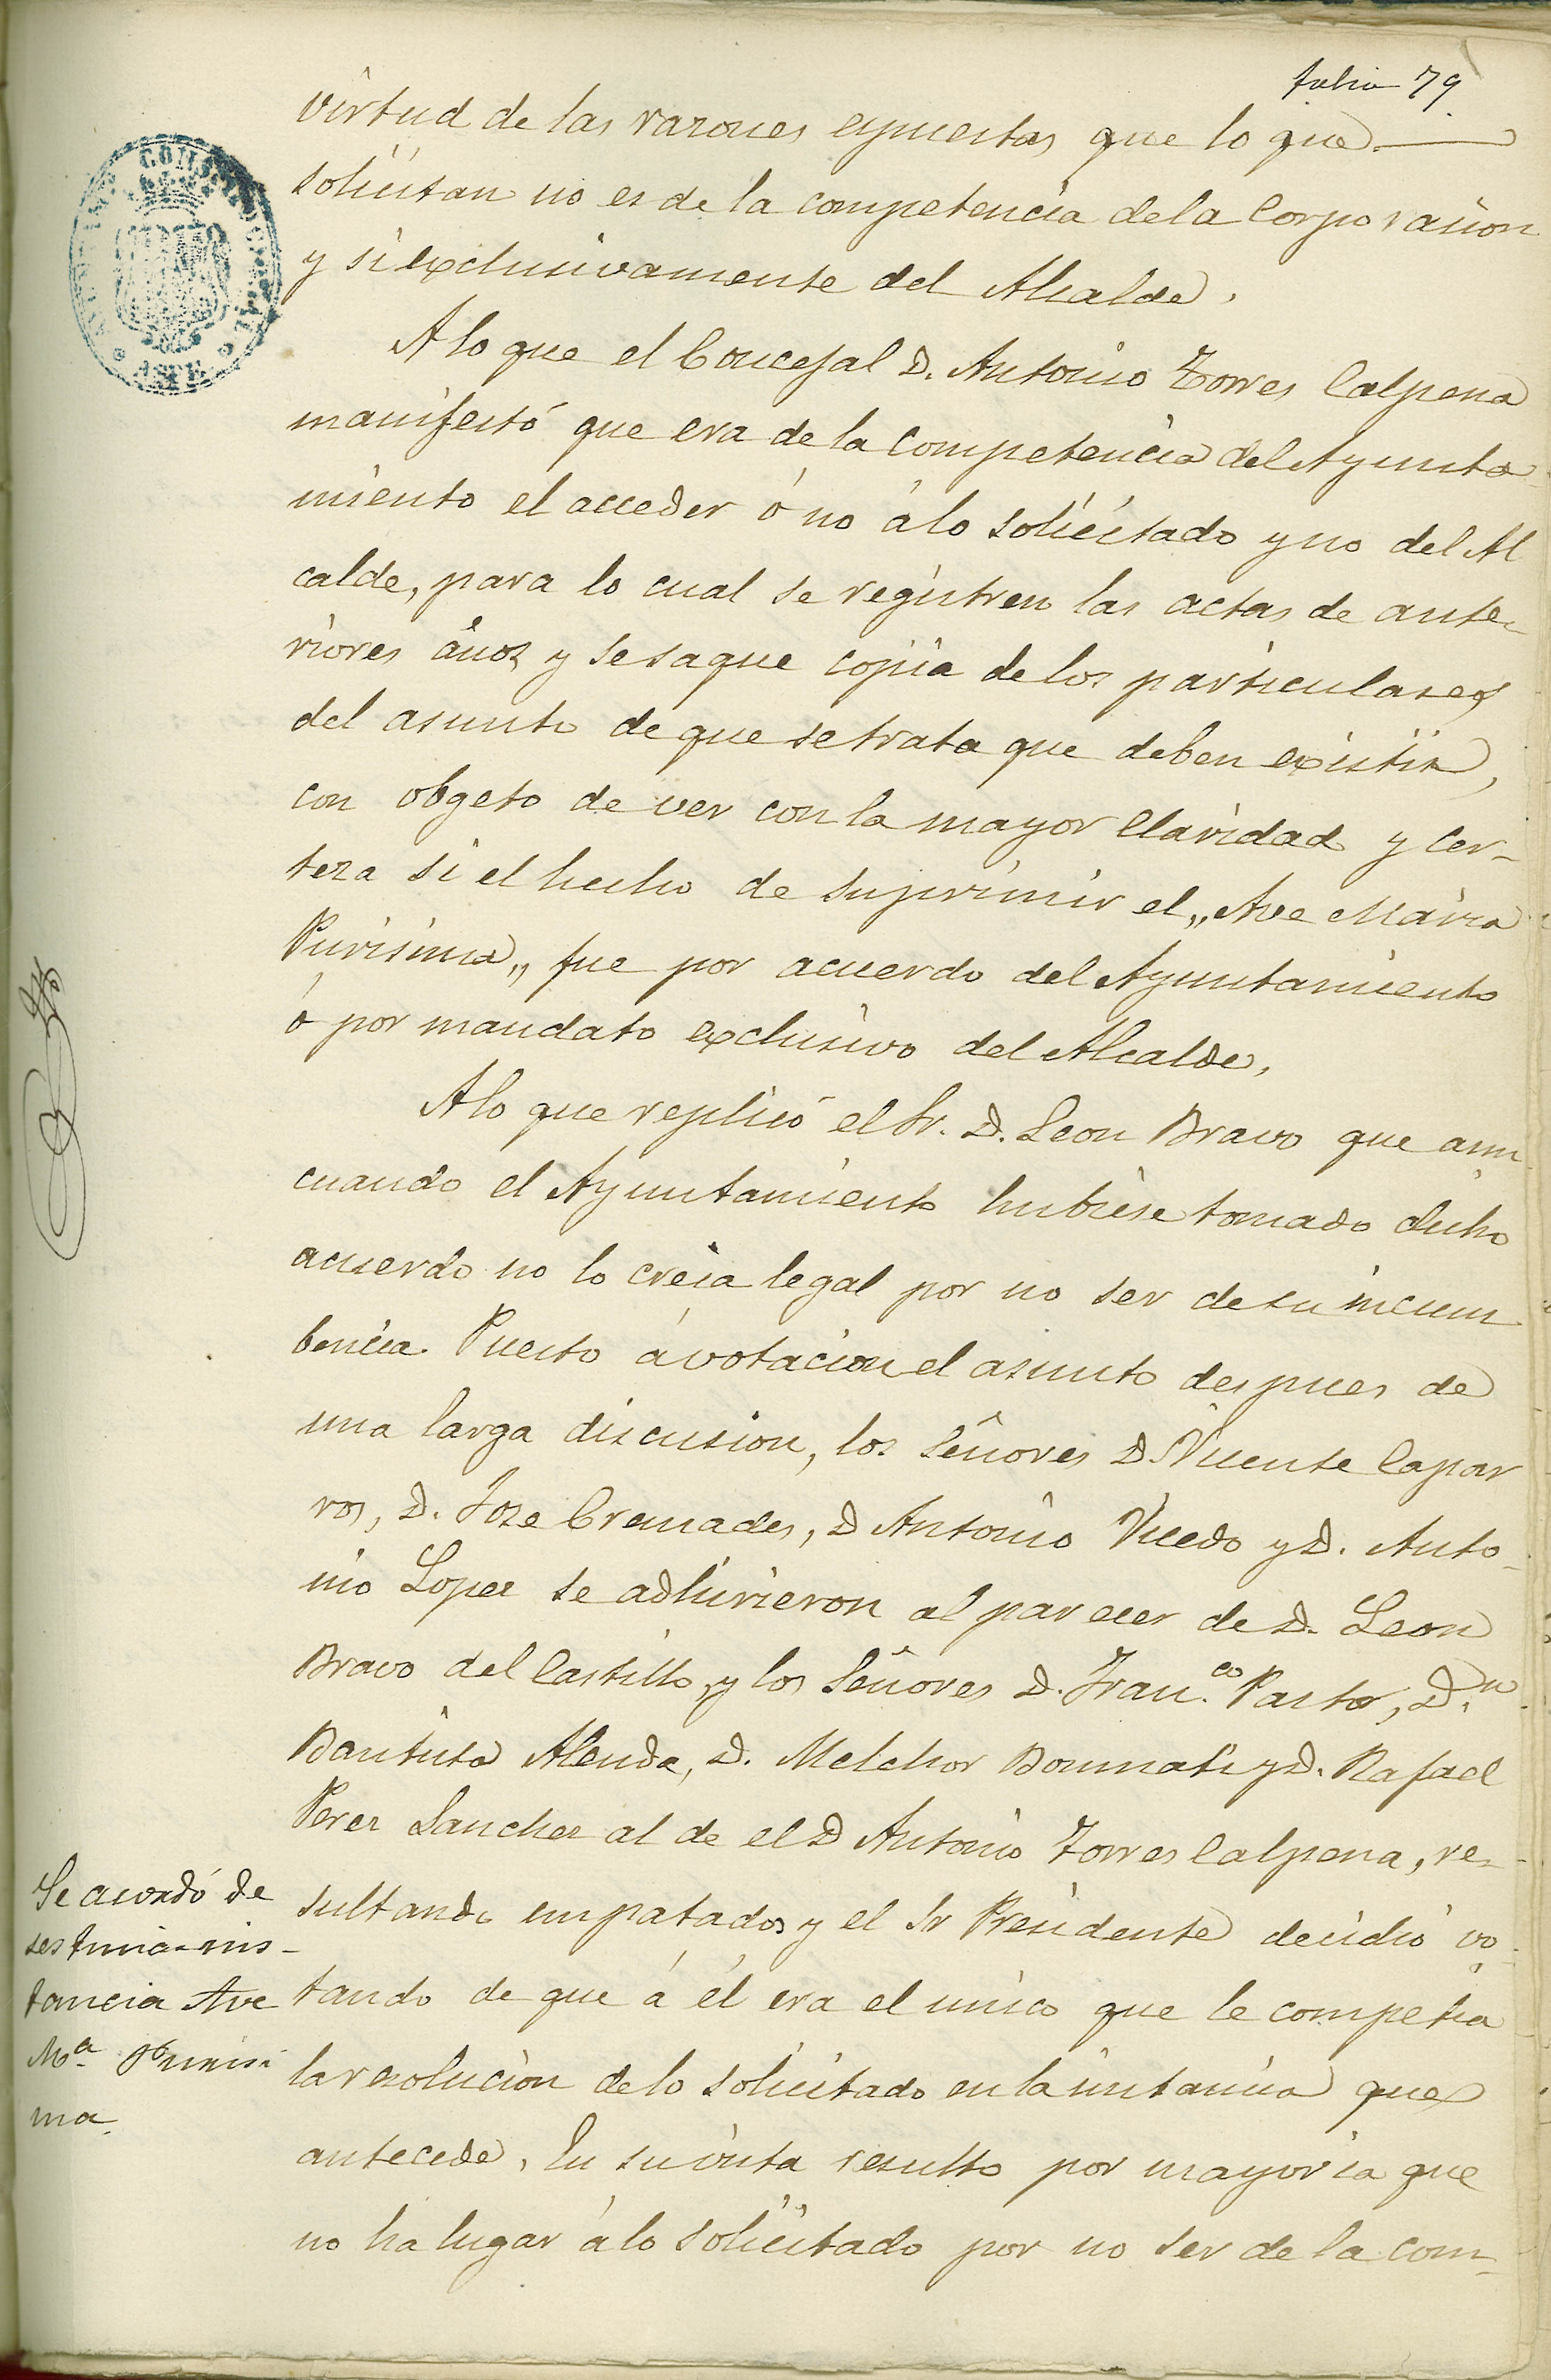 folio 79
virtud de las razones espuestas que lo que
solicitan no es de la competencia de la Corporacion
y si exclusivamente del Alcalde.
A lo que el Concejal D. Antonio Torres Calpena
manifestó que era de la competencia del Ayunta-
miento el acceder ó no á lo solicitado y no del Al
calde, para lo cual se registren las actas de ante-
riores años y se saque copia de los particulares
del asunto de que se trata que deben existir,
con obgeto de ver con la mayor claridad y cer-
teza si el hecho de suprimir el „Ave Maria
Purisima„ fue por acuerdo del Ayuntamiento
ó por mandato exclusivo del Alcalde.
A lo que replicó el Sr. D. Leon Bravo que aun
cuando el Ayuntamiento hubiese tomado dicho
acuerdo no lo creia legal por no ser de su incum
bencia. Puesto á votacion el asunto despues de
una larga discusion, los Señores D. Vicente Capar
ros, D. Jose Cremades, D Antonio Vicedo y D. Anto-
nio Lopez se adhirieron al parecer de D. Leon
Bravo del Castillo, y los Señores D. Fran.co Pastor, D.n
Bautista Alenda, D. Melchor Bonmati y D. Rafael
Perez Sanchez al de el D Antonio Torres Calpena, re-
sultando empatados y el Sr Presidente decidió vo-
tando de que á él era el unico que le competia
la resolucion de lo solicitado en la instancia que
antecede. En su vista resulto por mayoria que
no ha lugar á lo solicitado por no ser de la com-
Se acordó de
sestima ins-
tancia Ave
Mª Purisi
ma.
ASPE